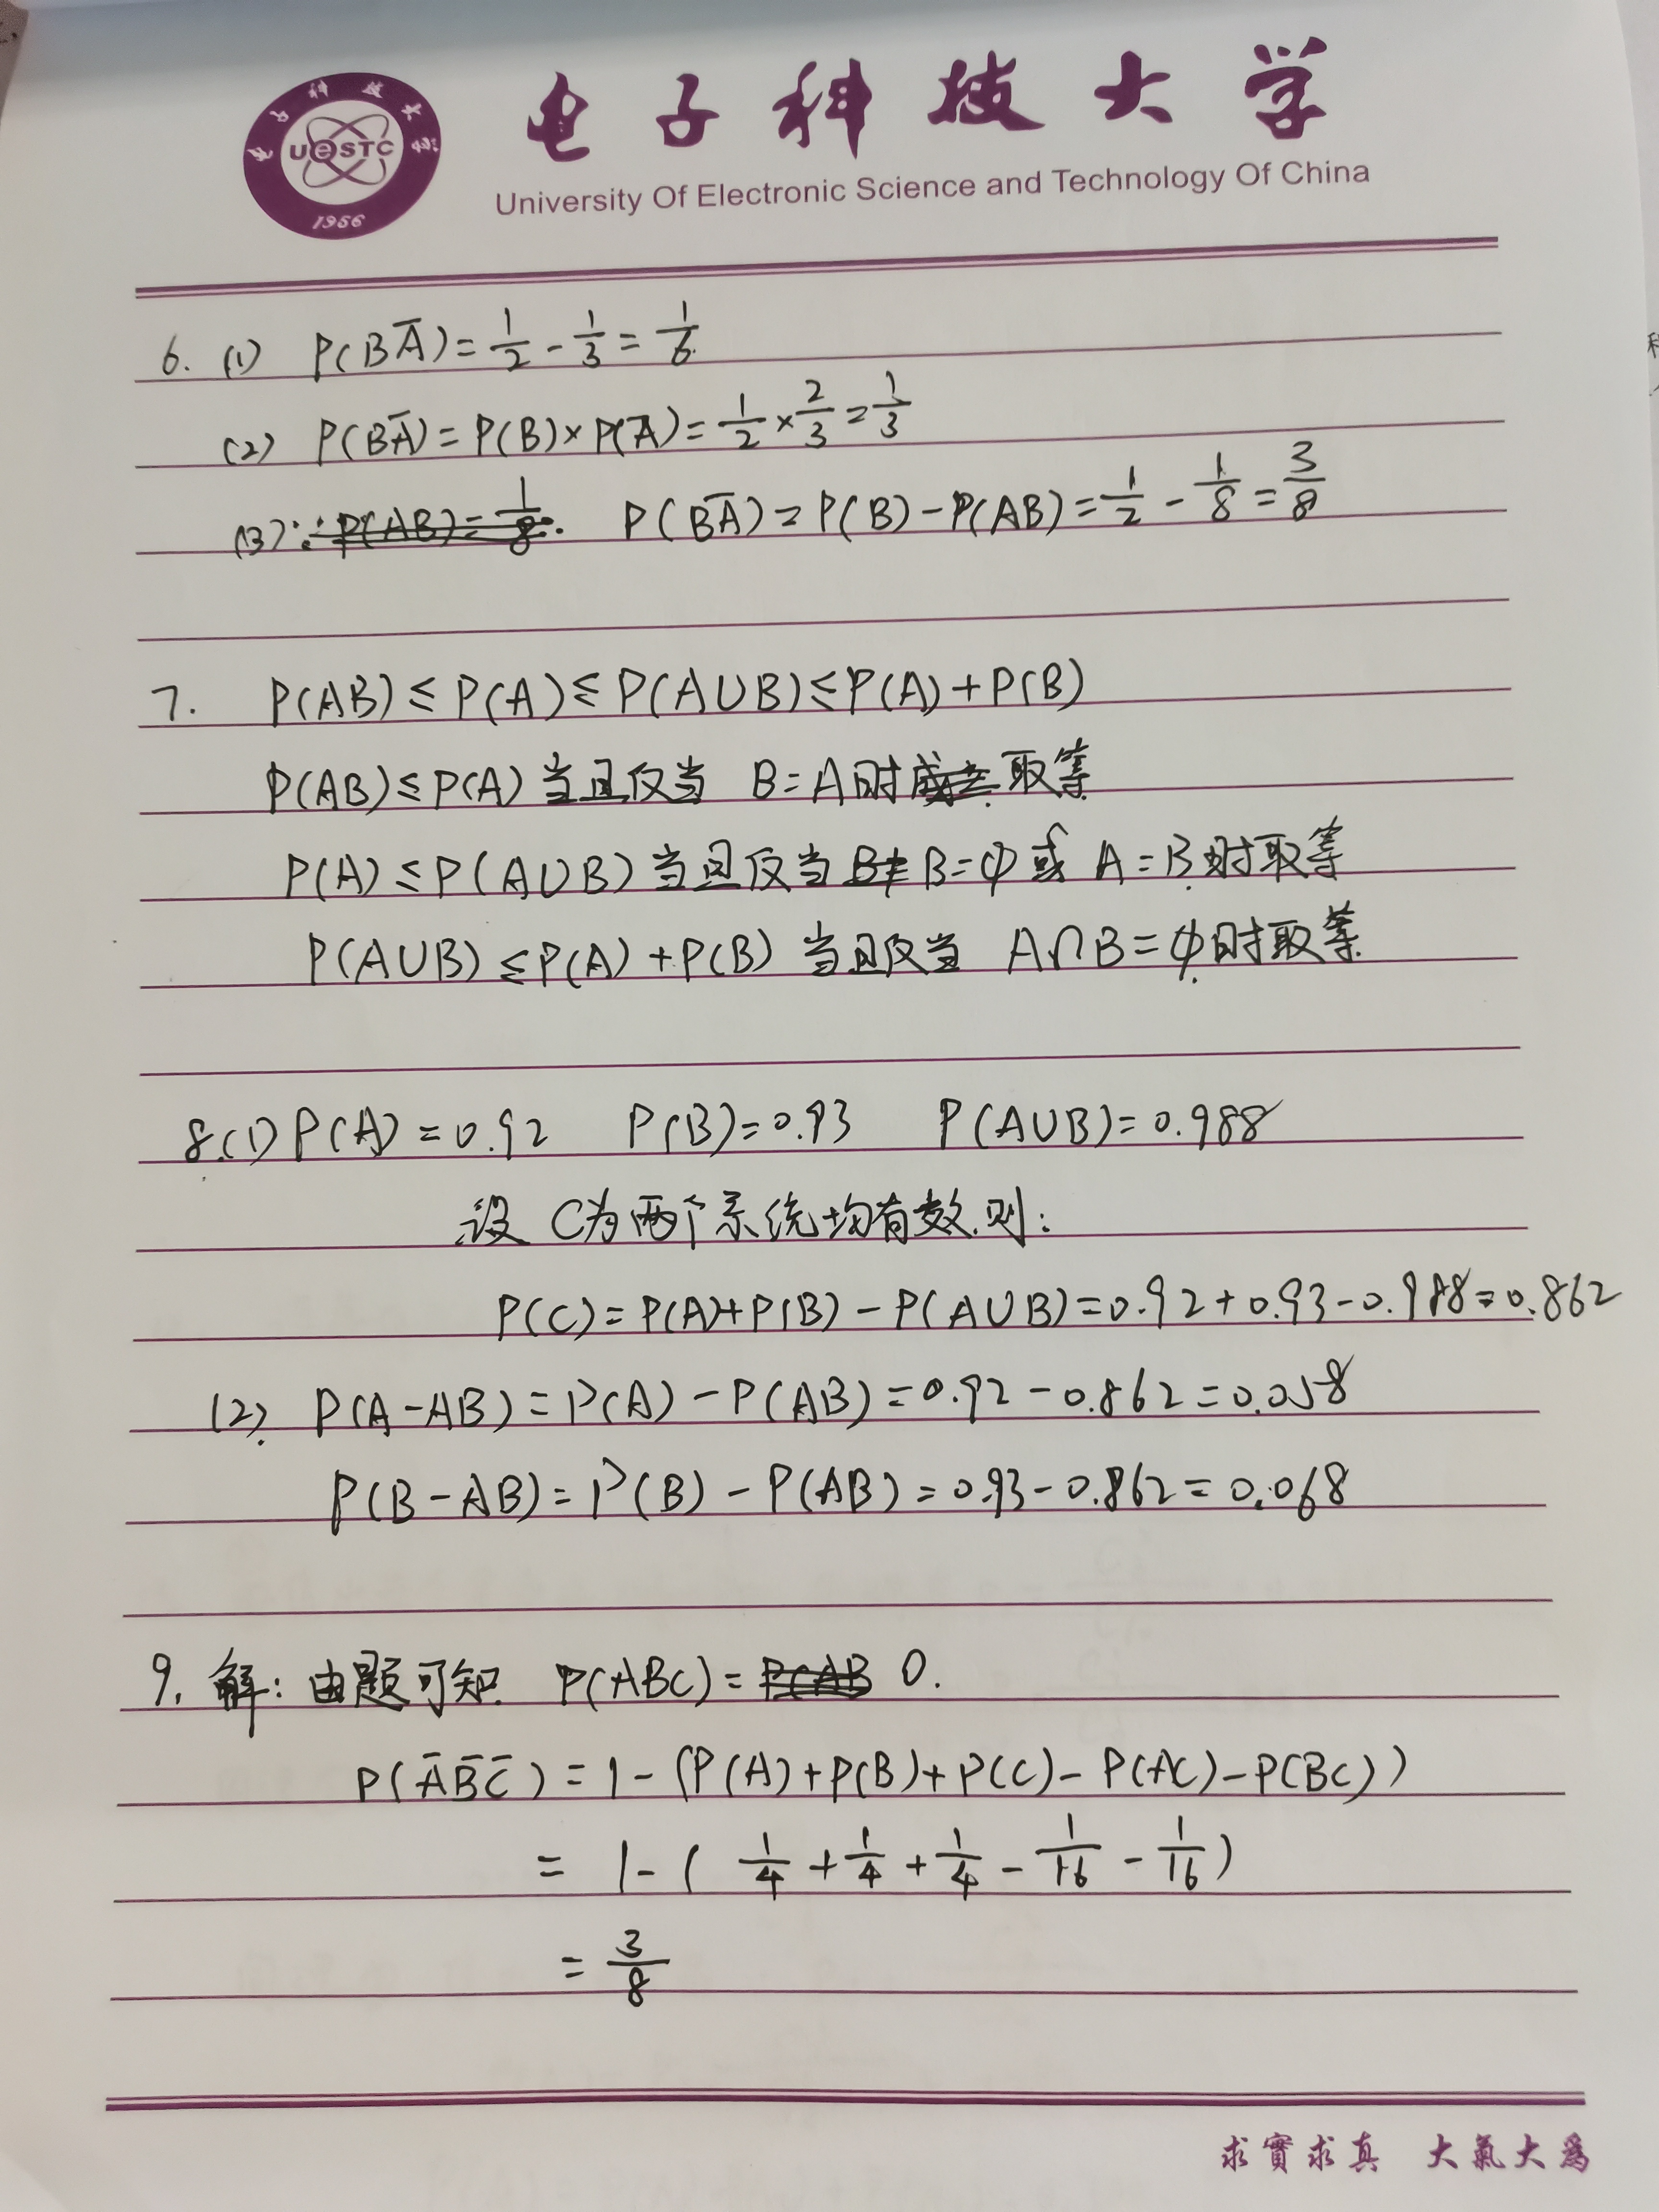 电子科技大学
UeSTC
1956
University Of Electronic Science and Technology Of China
6. (1) P(BĀ)=1/2-1/3=1/6
(2) P(BĀ)=P(B)×P(Ā)=1/2×2/3=1/3
(3) ∵ P(AB)=1/8. P(BĀ)=P(B)-P(AB)=1/2-1/8=3/8
7. P(AB)≤P(A)≤P(A∪B)≤P(A)+P(B)
P(AB)≤P(A) 当且仅当 B=A时成立 取等
P(A)≤P(A∪B) 当且仅当 B≠ B=φ 或 A=B 时取等
P(A∪B)≤P(A)+P(B) 当且仅当 A∩B=φ时取等
8.(1) P(A)=0.92 P(B)=0.93 P(A∪B)=0.988
设 C为两个系统均有效.则:
P(C)=P(A)+P(B)-P(A∪B)=0.92+0.93-0.988=0.862
(2). P(A-AB)=P(A)-P(AB)=0.92-0.862=0.058
P(B-AB)=P(B)-P(AB)=0.93-0.862=0.068
9. 解: 由题可知 P(ABC)=P(AB 0.
P(ĀB̄C̄)=1-(P(A)+P(B)+P(C)-P(AC)-P(BC))
=1-(1/4+1/4+1/4-1/16-1/16)
=3/8
求實求真 大氣大為